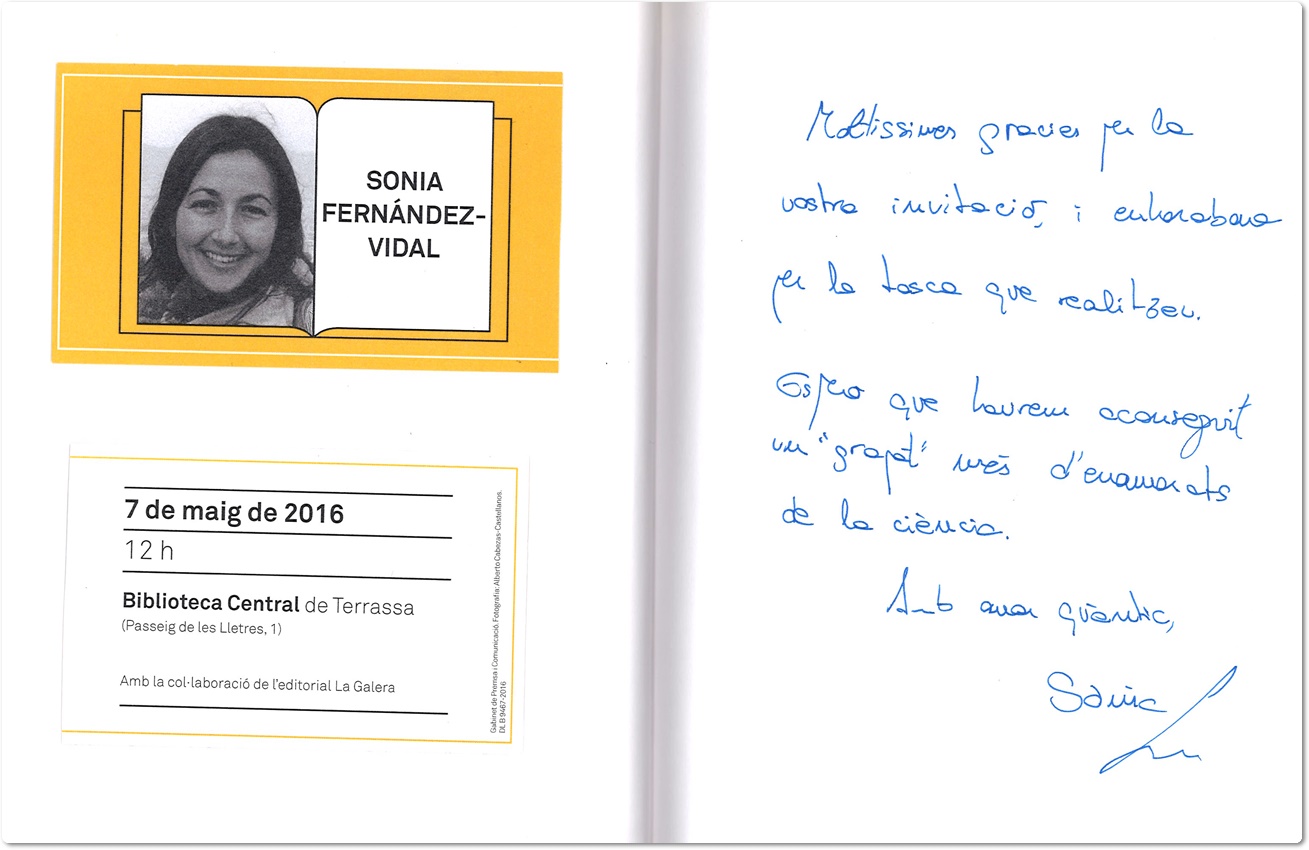 SONIA
FERNÁNDEZ-
VIDAL
7 de maig de 2016
12 h
Biblioteca Central de Terrassa
(Passeig de les Lletres, 1)
Amb la col·laboració de l'editorial La Galera
Gabinet de Premsa i Comunicació. Fotografia: Alberto Cabezas-Castellanos.
DL B 9467-2016
Moltíssimes gracies per la
vostra invitació, i enhorabona
per la tasca que realitzeu.
Espero que haurem aconseguit
un "grapat" més d'enamorats
de la ciència.
Amb amor quàntic,
Sònia